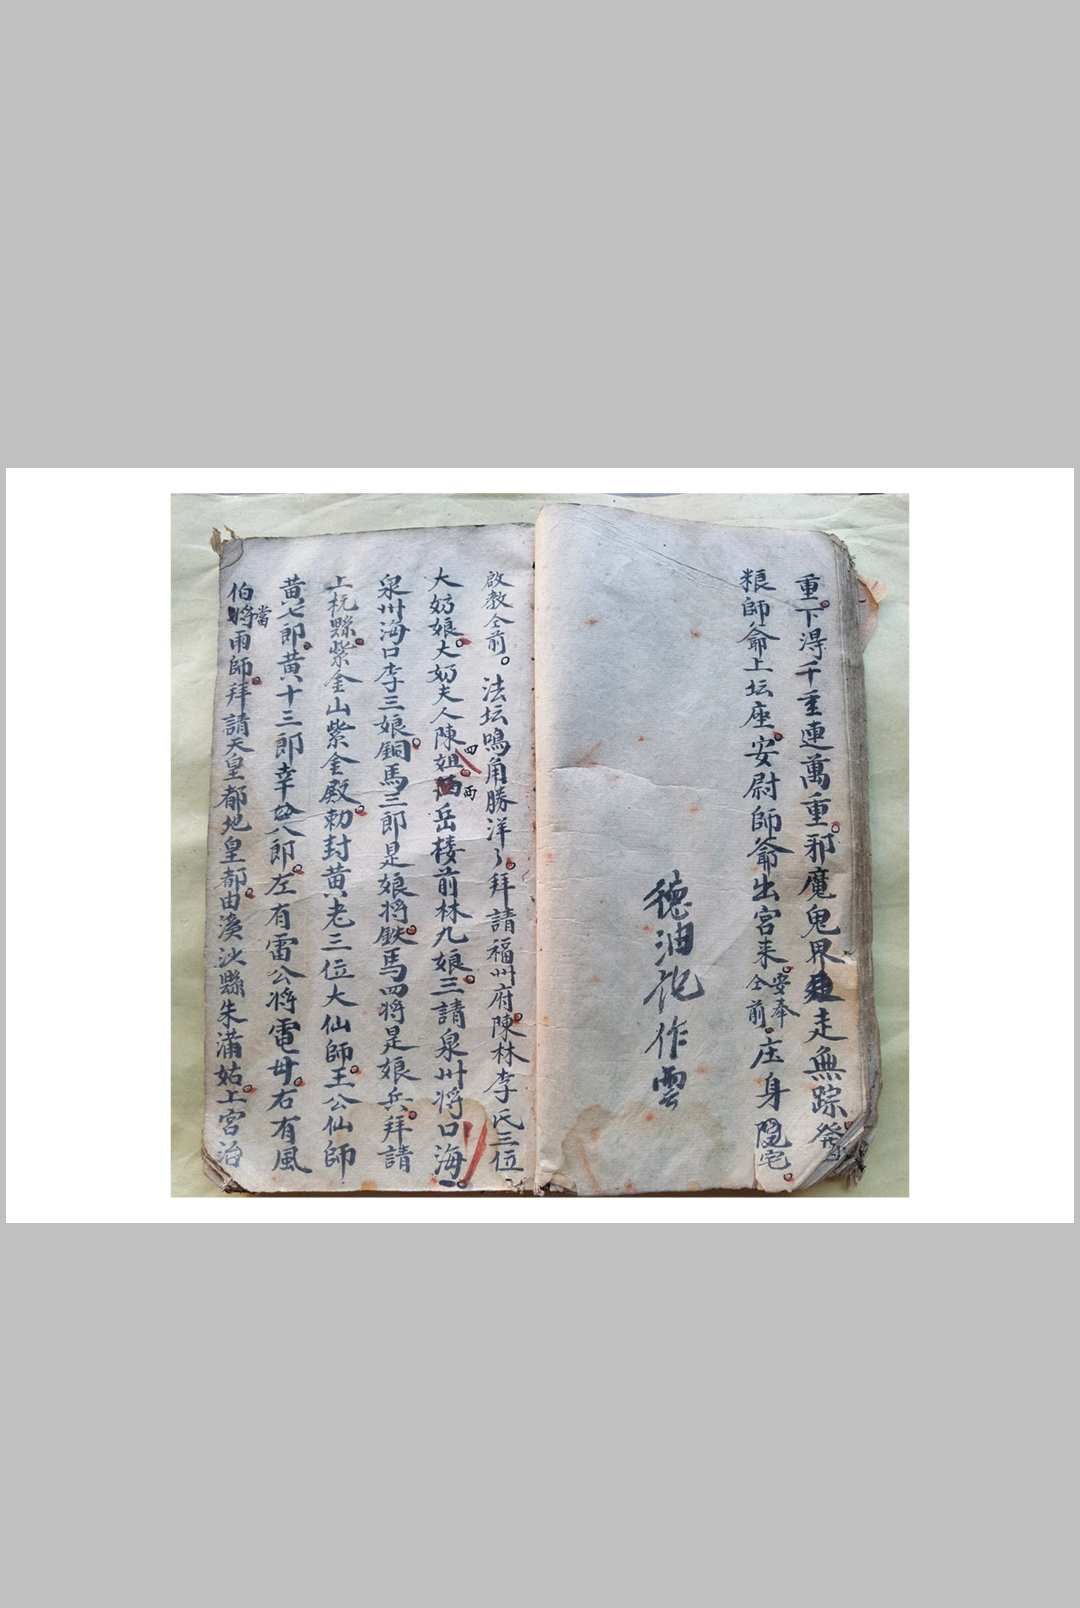 重下得千重連萬重邪魔鬼界走無踪發
粮師爺上坛座安尉師爺出宮来安奉仝前庄身宅
德油化作雲
啟教仝前法坛鳴角勝洋々拜請福州府陳林李氏三位
大奶娘大奶夫人陳姐四兩岳楼前林九娘三請泉州将口海
泉州海口李三娘銅馬三郎是娘将鉄馬四将是娘兵拜請
上杭縣紫金山紫金殿勅封黄老三位大仙師王公仙師
黄七郎黄十三郎幸八郎左有雷公将電母右有風
伯将當雨師拜請天皇都地皇都由溪沙縣朱滿姑上宮治